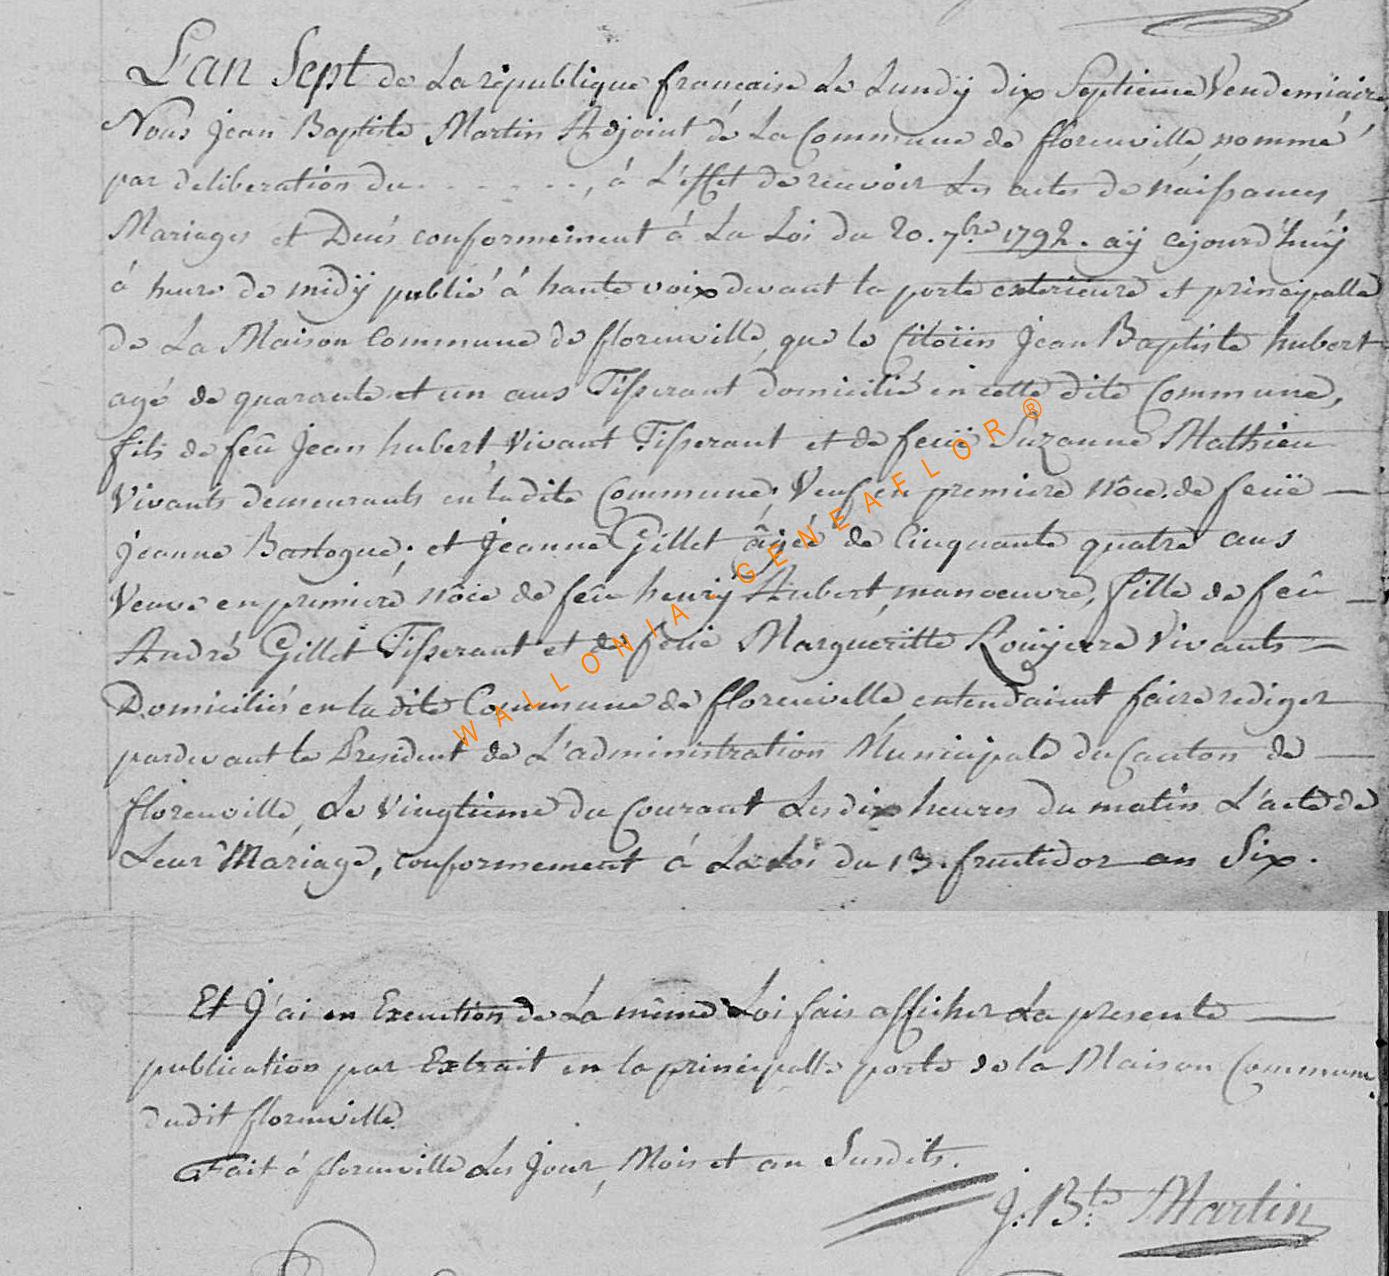 L'an Sept de La république française Le Lundÿ dix Septieme Vendemiaire
Nous Jean Baptiste Martin Adjoint de La Commune de florenville, nommé
par deliberation du . . . . . . , á L'effet de recevoir Les actes de naissances,
Mariages et Decés conformement á La Loi du 20. 7.bre 1792. aÿ cejourd'huÿ
á heure de midÿ publié á haute voix devant la porte exterieure et principalle
de La Maison Commune de florenville, que le Citoïen Jean Baptiste hubert
agé de quarante et un ans Tisserant domicilié en cette dite Commune,
fils de feû Jean hubert vivant Tisserant et de feuë Suzanne Mathieu
Vivants demeurants en ladite Commune, Veuf en premiere nôce de feuë
Jeanne Bastogne; et Jeanne Gillet âgée de Cinquante quatre ans
Veuve en premiere nôce de feû henrÿ Aubert, manoeuvre, fille de feû
André Gillet Tisserant et de feuë Margueritte Rouÿerre Vivants
Domiciliés en la dite Commune de florenville entendaient faire rediger
pardevant le President de L'administration Municipale du Canton de
florenville, Le Vingtieme du Courant Les dix heures du matin L'acte de
Leur Mariage, conformement á La Loi du 13. fructidor an Six.
Et J'ai en Execution de La même Loi fais afficher La presente
publication par Extrait en la principalle porte de la Maison Commune
dudit florenville.
Fait á florenville Les Jour, Mois et an Susdits.
J: B.te Martin
WALLONIA - GENEAFLOR ®